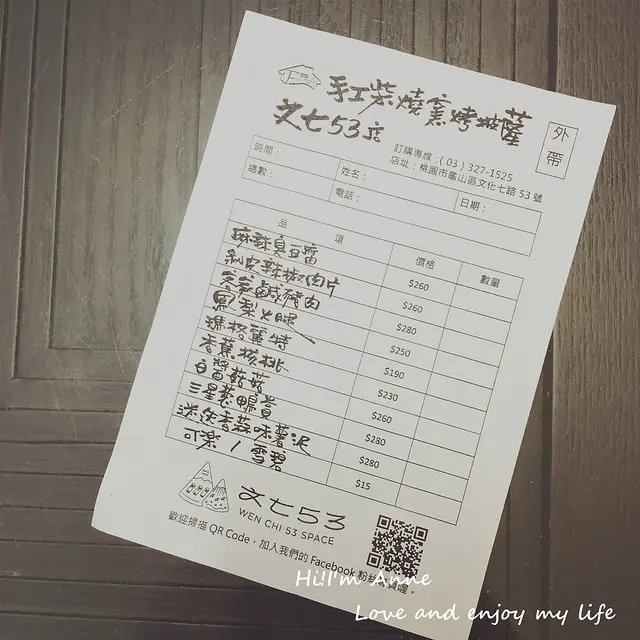 手工柴燒窯烤披薩
文七53店
外帶
訂購專線：(03) 327-1525
店址：桃園市龜山區文化七路 53 號
時間：
姓名：
日期：
總數：
電話：
品項 價格 數量
麻辣臭豆腐 $260
剝皮辣椒肉片 $260
客家鹹豬肉 $280
鳳梨火腿 $250
瑪格麗特 $190
香蕉核桃 $230
白醬菇菇 $260
三星蔥鴨賞 $280
迷迭香蒜味薯泥 $280
可樂 / 雪碧 $15
文七53
WEN CHI 53 SPACE
歡迎掃描 QR Code，加入我們的 Facebook 粉絲專頁喔。
Hi!I'm Anne
Love and enjoy my life